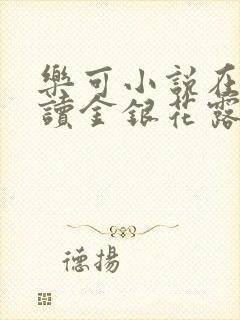 樂可小說在
讀金銀花露
德揚